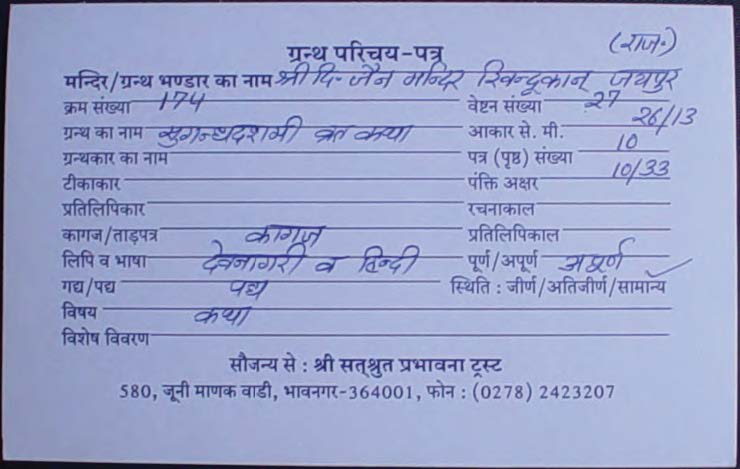 (राज॰)
ग्रन्थ परिचय-पत्र
मन्दिर/ग्रन्थ भण्डार का नाम श्री दि- जैन मन्दिर खिन्दूकान् जयपुर
क्रम संख्या 174 वेष्टन संख्या 27
ग्रन्थ का नाम सुगन्धदशमी व्रत कथा आकार से. मी. 26/13
ग्रन्थकार का नाम पत्र (पृष्ठ) संख्या 10
टीकाकार पंक्ति अक्षर 10/33
प्रतिलिपिकार रचनाकाल
कागज/ताड़पत्र कागज प्रतिलिपिकाल
लिपि व भाषा देवनागरी व हिन्दी पूर्ण/अपूर्ण अपूर्ण
गद्य/पद्य पद्य स्थिति : जीर्ण/अतिजीर्ण/सामान्य ✓
विषय कथा
विशेष विवरण
सौजन्य से : श्री सत्श्रुत प्रभावना ट्रस्ट
580, जूनी माणक वाडी, भावनगर-364001, फोन : (0278) 2423207